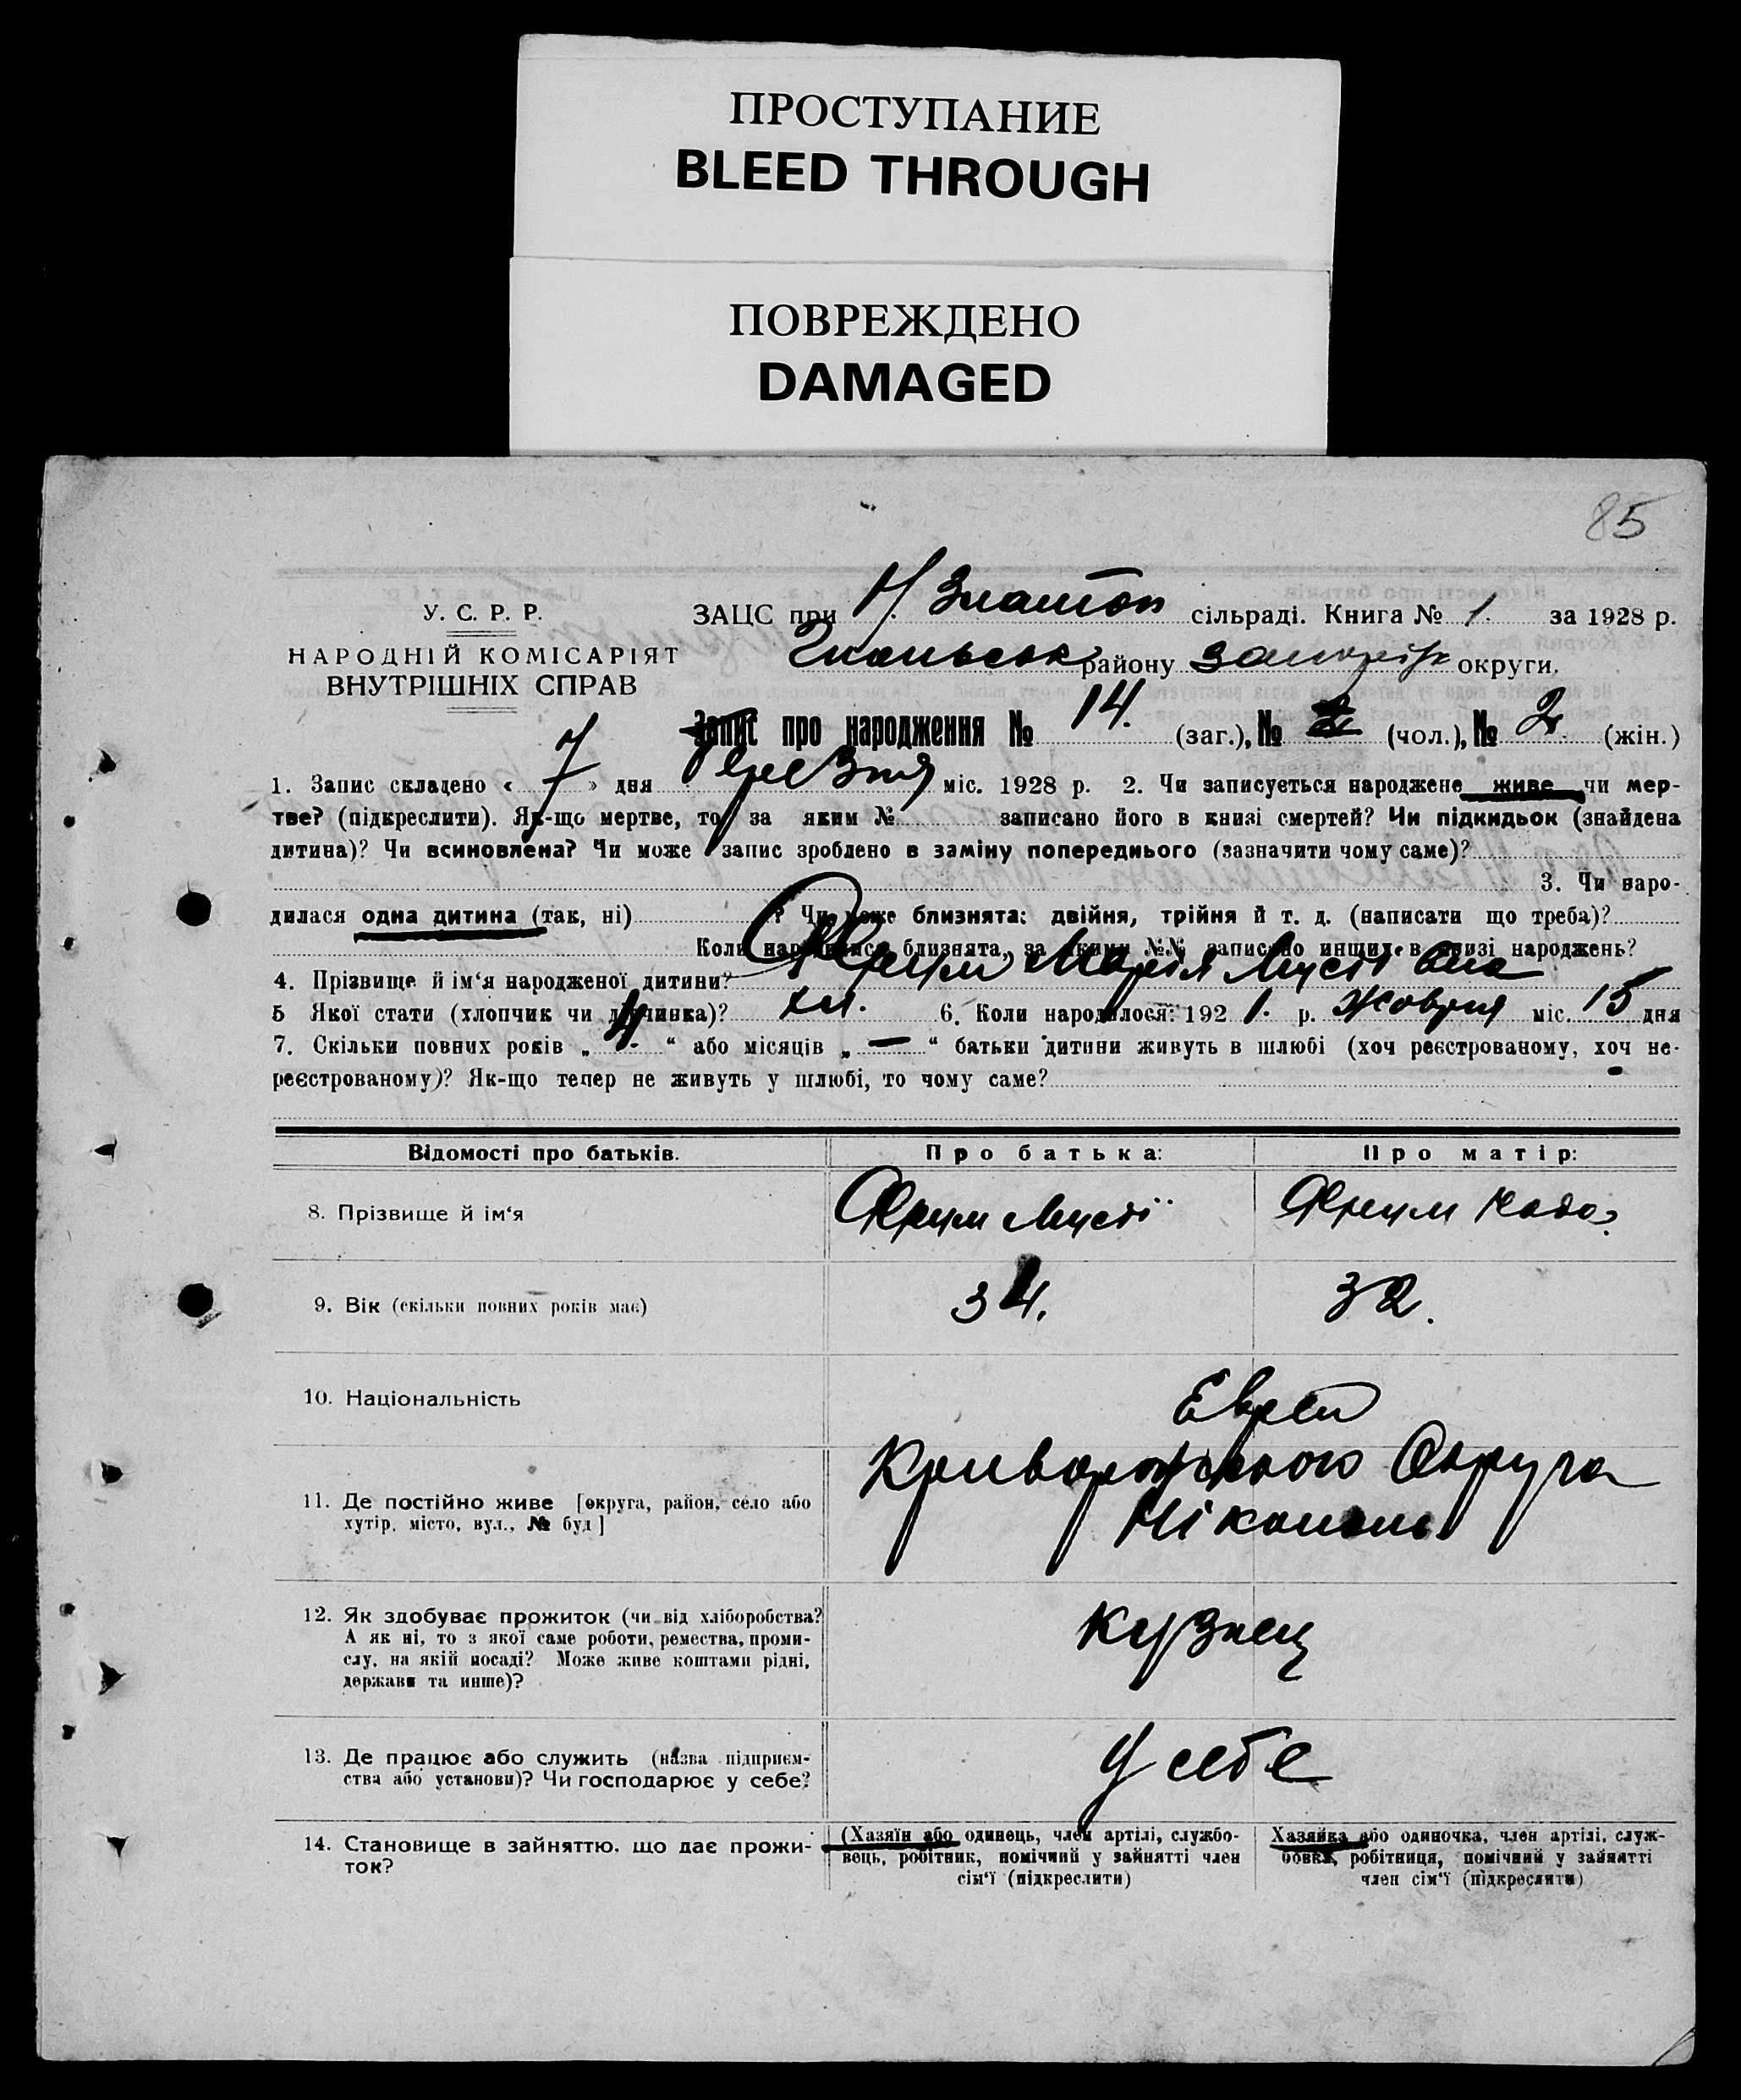 ПРОСТУПАНИЕ
BLEED THROUGH
ПОВРЕЖДЕНО
DAMAGED
85
У. С. Р. Р.
НАРОДНІЙ КОМІСАРІЯТ
ВНУТРІШНІХ СПРАВ
ЗАЦС при сільраді. Книга № 1. за 1928 р.
району округи.
Запис про народження № 14. (заг.), № (чол.), № 2. (жін.)
1. Запис складено « 7 » дня березня міс. 1928 р. 2. Чи записується народжене живе чи мер-
тве? (підкреслити). Як-що мертве, то за яким № записано його в книзі смертей? Чи підкидьок (знайдена
дитина)? Чи всиновлена? Чи може запис зроблено в заміну попереднього (зазначити чому саме)?
3. Чи наро-
дилася одна дитина (так, ні) ? Чи може близнята: двійня, трійня й т. д. (написати що треба)?
Коли народилися близнята, за якими №№ записано инших в книзі народжень?
4. Прізвище й ім‘я народженої дитини? Марія
5 Якої стати (хлопчик чи дівчинка)? 6. Коли народилося: 192 1. р. жовтня міс. 15 дня
7. Скільки повних років „ “ або місяців „ — “ батьки дитини живуть в шлюбі (хоч реєстрованому, хоч не-
реєстрованому)? Як-що тепер не живуть у шлюбі, то чому саме? -
Відомості про батьків. Про батька: Про матір:
8. Прізвище й ім‘я
9. Вік (скільки повних років має) 34. 32.
10. Національність Евреи
11. Де постійно живе [округа, район, село або
хутір, місто, вул., № буд] Криворожского Округа
Нікополь
12. Як здобуває прожиток (чи від хліборобства?
А як ні, то з якої саме роботи, ремества, проми-
слу, на якій посаді? Може живе коштами рідні,
держави та инше)? Кузнец
13. Де працює або служить (назва підприєм-
ства або установи)? Чи господарює у себе? У себе
14. Становище в зайняттю, що дає прожи-
ток?
(Хазяїн або одинець, член артілі, службо-
вець, робітник, помічний у зайнятті член
сім‘ї (підкреслити)
Хазяйка або одиночка, член артілі, служ-
бовка, робітниця, помічний у зайнятті
член сім‘ї (підкреслити)